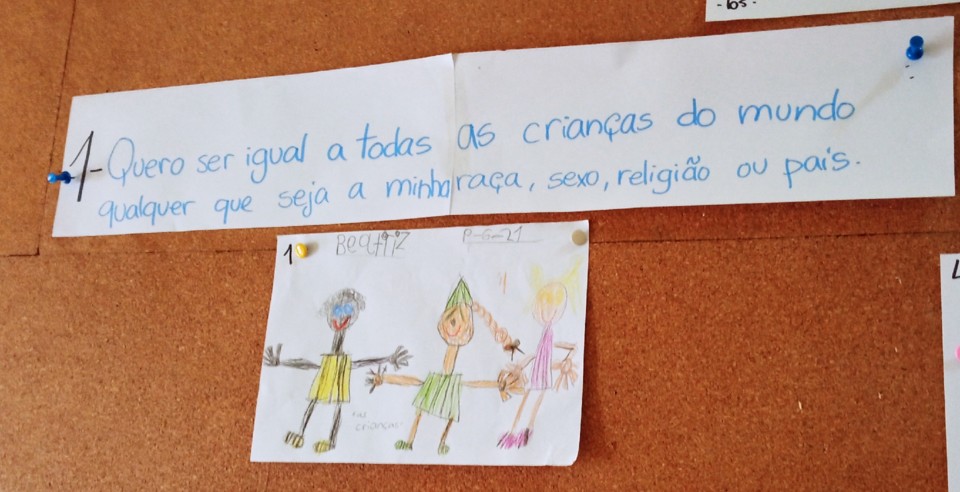 - los -
1- Quero ser igual a todas as crianças do mundo
qualquer que seja a minha raça, sexo, religião ou país.
1 Beatriz
crianças
L